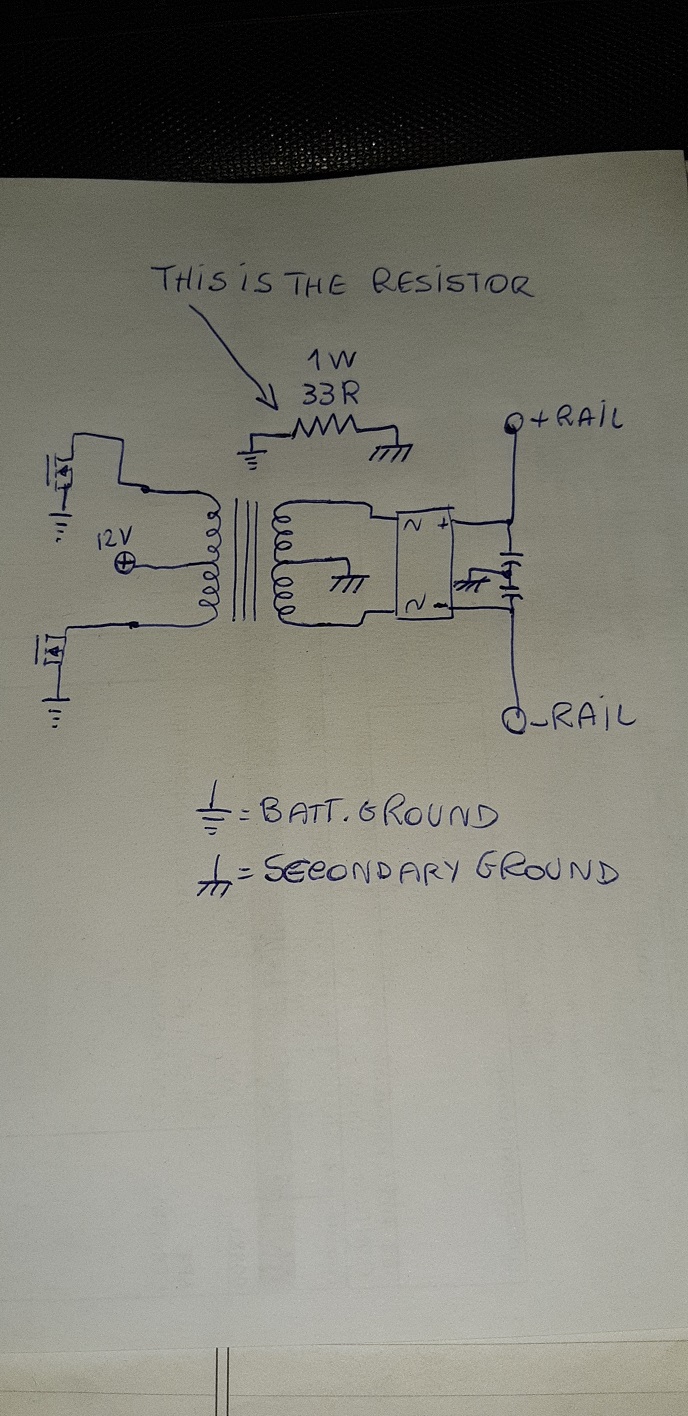 THIS IS THE RESISTOR
1W
33R
+RAIL
12V
~ +
~ -
-RAIL
= BATT. GROUND
= SECONDARY GROUND